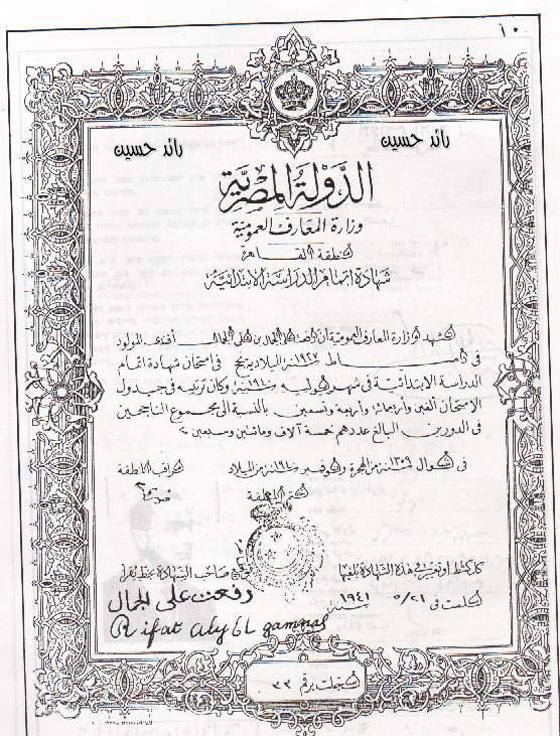 ١٠
رائد حسين
رائد حسين
الدولة المصرية
وزارة المعارف العمومية
منطقة القاهرة
شهادة اتمام الدراسة الابتدائية
تشهد وزارة المعارف العمومية أن رفعت على الجمال بن على الجمال أفندى المولود
فى دمياط ١٩٢٧ الميلادية نجح فى امتحان شهادة اتمام
الدراسة الابتدائية فى شهر يوليه سنة ١٩٤٠ وكان ترتيبه فى جدول
الامتحان ألفين وأربعمائة وأربعة وتسعين بالنسبة الى مجموع الناجحين
فى الدورين البالغ عددهم خمسة آلاف ومائتين وسبعين
فى شوال سنة ١٣٥٩ من الهجرة ونوفمبر سنة ١٩٤٠ من الميلاد
مراقب المنطقة
ختم المنطقة
كل كشط أو تغيير فى هذه الشهادة يلغيها
توقيع صاحب الشهادة بخطه
رفعت على الجمال
سلمت فى ٥/٢١ سنة ١٩٤١
Rifat Aly El gammal
سجلت برقم ٣٣